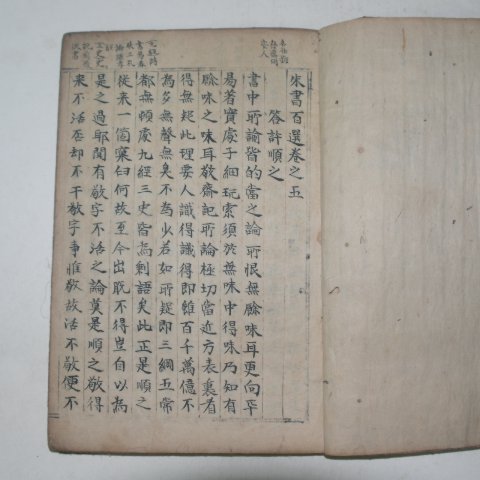 朱書百選卷之五
答許順之
書中所諭皆的當之論所恨無餘味耳更向平
易著實處子細玩索須於無味中得味乃知有
餘味之味耳敬齋記所論極切當近方表裏看
得無疑此理要人識得識得即雖百千萬億不
為多無聲無臭不為少若如所疑即三綱五常
都無頓處九經三史皆為剩語矣此正是順之
從来一箇窠臼何故至今出脫不得豈自以為
是之過耶聞有敬字不活之論莫是順之敬得
来不活否却不干敬字事惟敬故活不敬便不